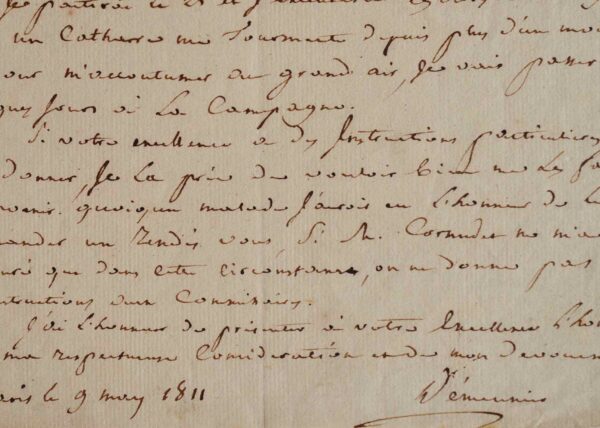 Je partirai le 25 et
un Catharre me Tourmente depuis plus d'un mo
our m'accoutumer au grand air, Je vais passer
ques Jours à La Campagne.
Si votre excellence a des Instructions particulieres
donner, Je La prie de vouloir bien me Les fa
venir. quoiqu'un malade J'aurois eu L'honneur de Lu
mander un Rendés vous, Si M. Cornudet ne m'a
uré que dans cette circonstance, on ne donne pas
structions aux Commissaires.
J'ai L'honneur de présenter à votre Excellence L'ho
ma respectueuse Considération et de mon devouem
aris le 9 may 1811
Démeunier